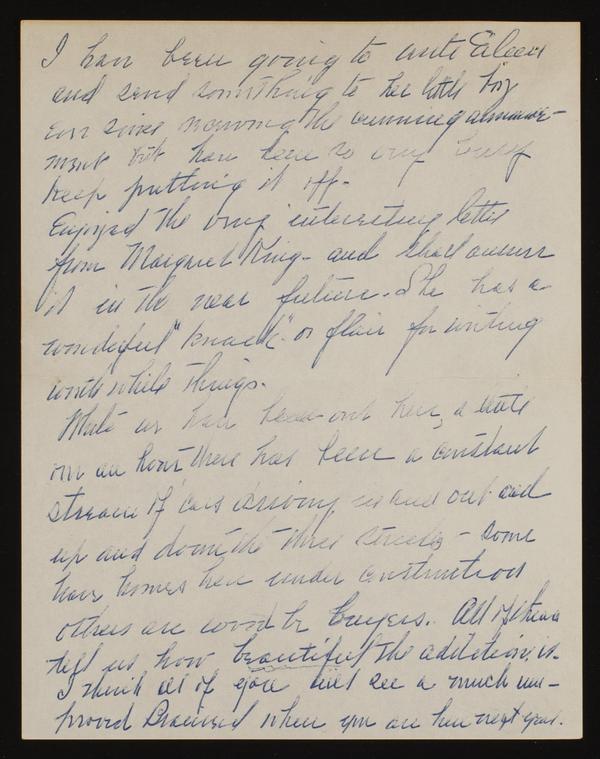 I have been going to write Eileen
and send something to her little boy
ever since receiving the cunning announce-
ment but have been so very busy
keep putting it off-
Enjoyed the very interesting letter
from Margaret King - and shall answer
it in the near future. She has a
wonderful "knack" or flair for writing
worth while things.
While we have been out here, a little
over an hour there has been a constant
stream of cars driving in and out and
up and down the three streets - some
have homes here under construction
others are would be buyers. All of them
tell us how beautiful the addition is.
I think all of you will see a much im-
proved when you are here next year.